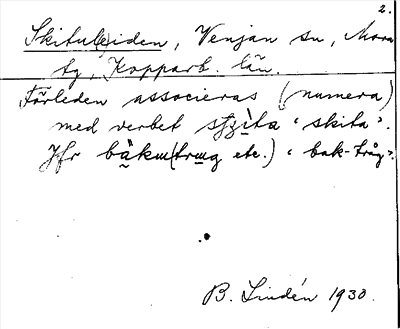 2.
Skitul(e)iden, Venjan sn, Mora
tg, Kopparb. län.
Förleden associeras (numera)
med verbet 'skita'.
Jfr etc.) 'bak-tråg'.
B. Lindén 1930.